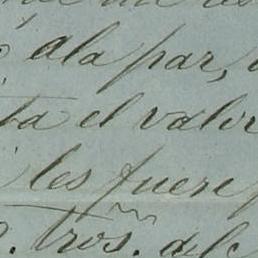 ala par,
ta el valor
les fuere
tros. del